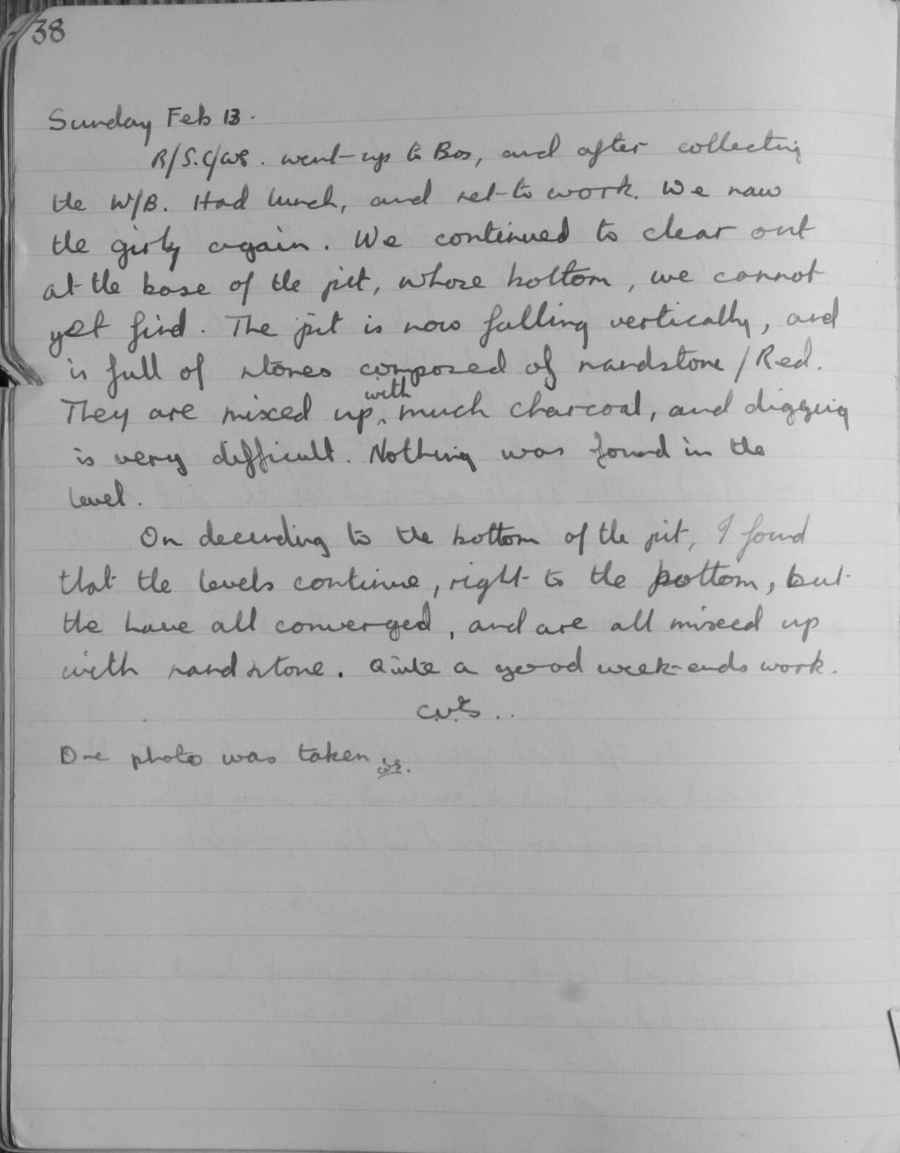 38
Sunday Feb 13.
R/S.C/WS. went up to Bos, and after collecting
the W/B. Had lunch, and set to work. We saw
the girly again. We continued to clear out
at the base of the pit, whose bottom, we cannot
yet find. The pit is now falling vertically, and
is full of stones composed of sandstone / Red.
They are mixed up with much charcoal, and digging
is very difficult. Nothing was found in the
level.
On decending to the bottom of the pit, I found
that the levels continue, right to the bottom, but
the have all converged, and are all mixed up
with sandstone. Quite a good week-ends work.
One photo was taken